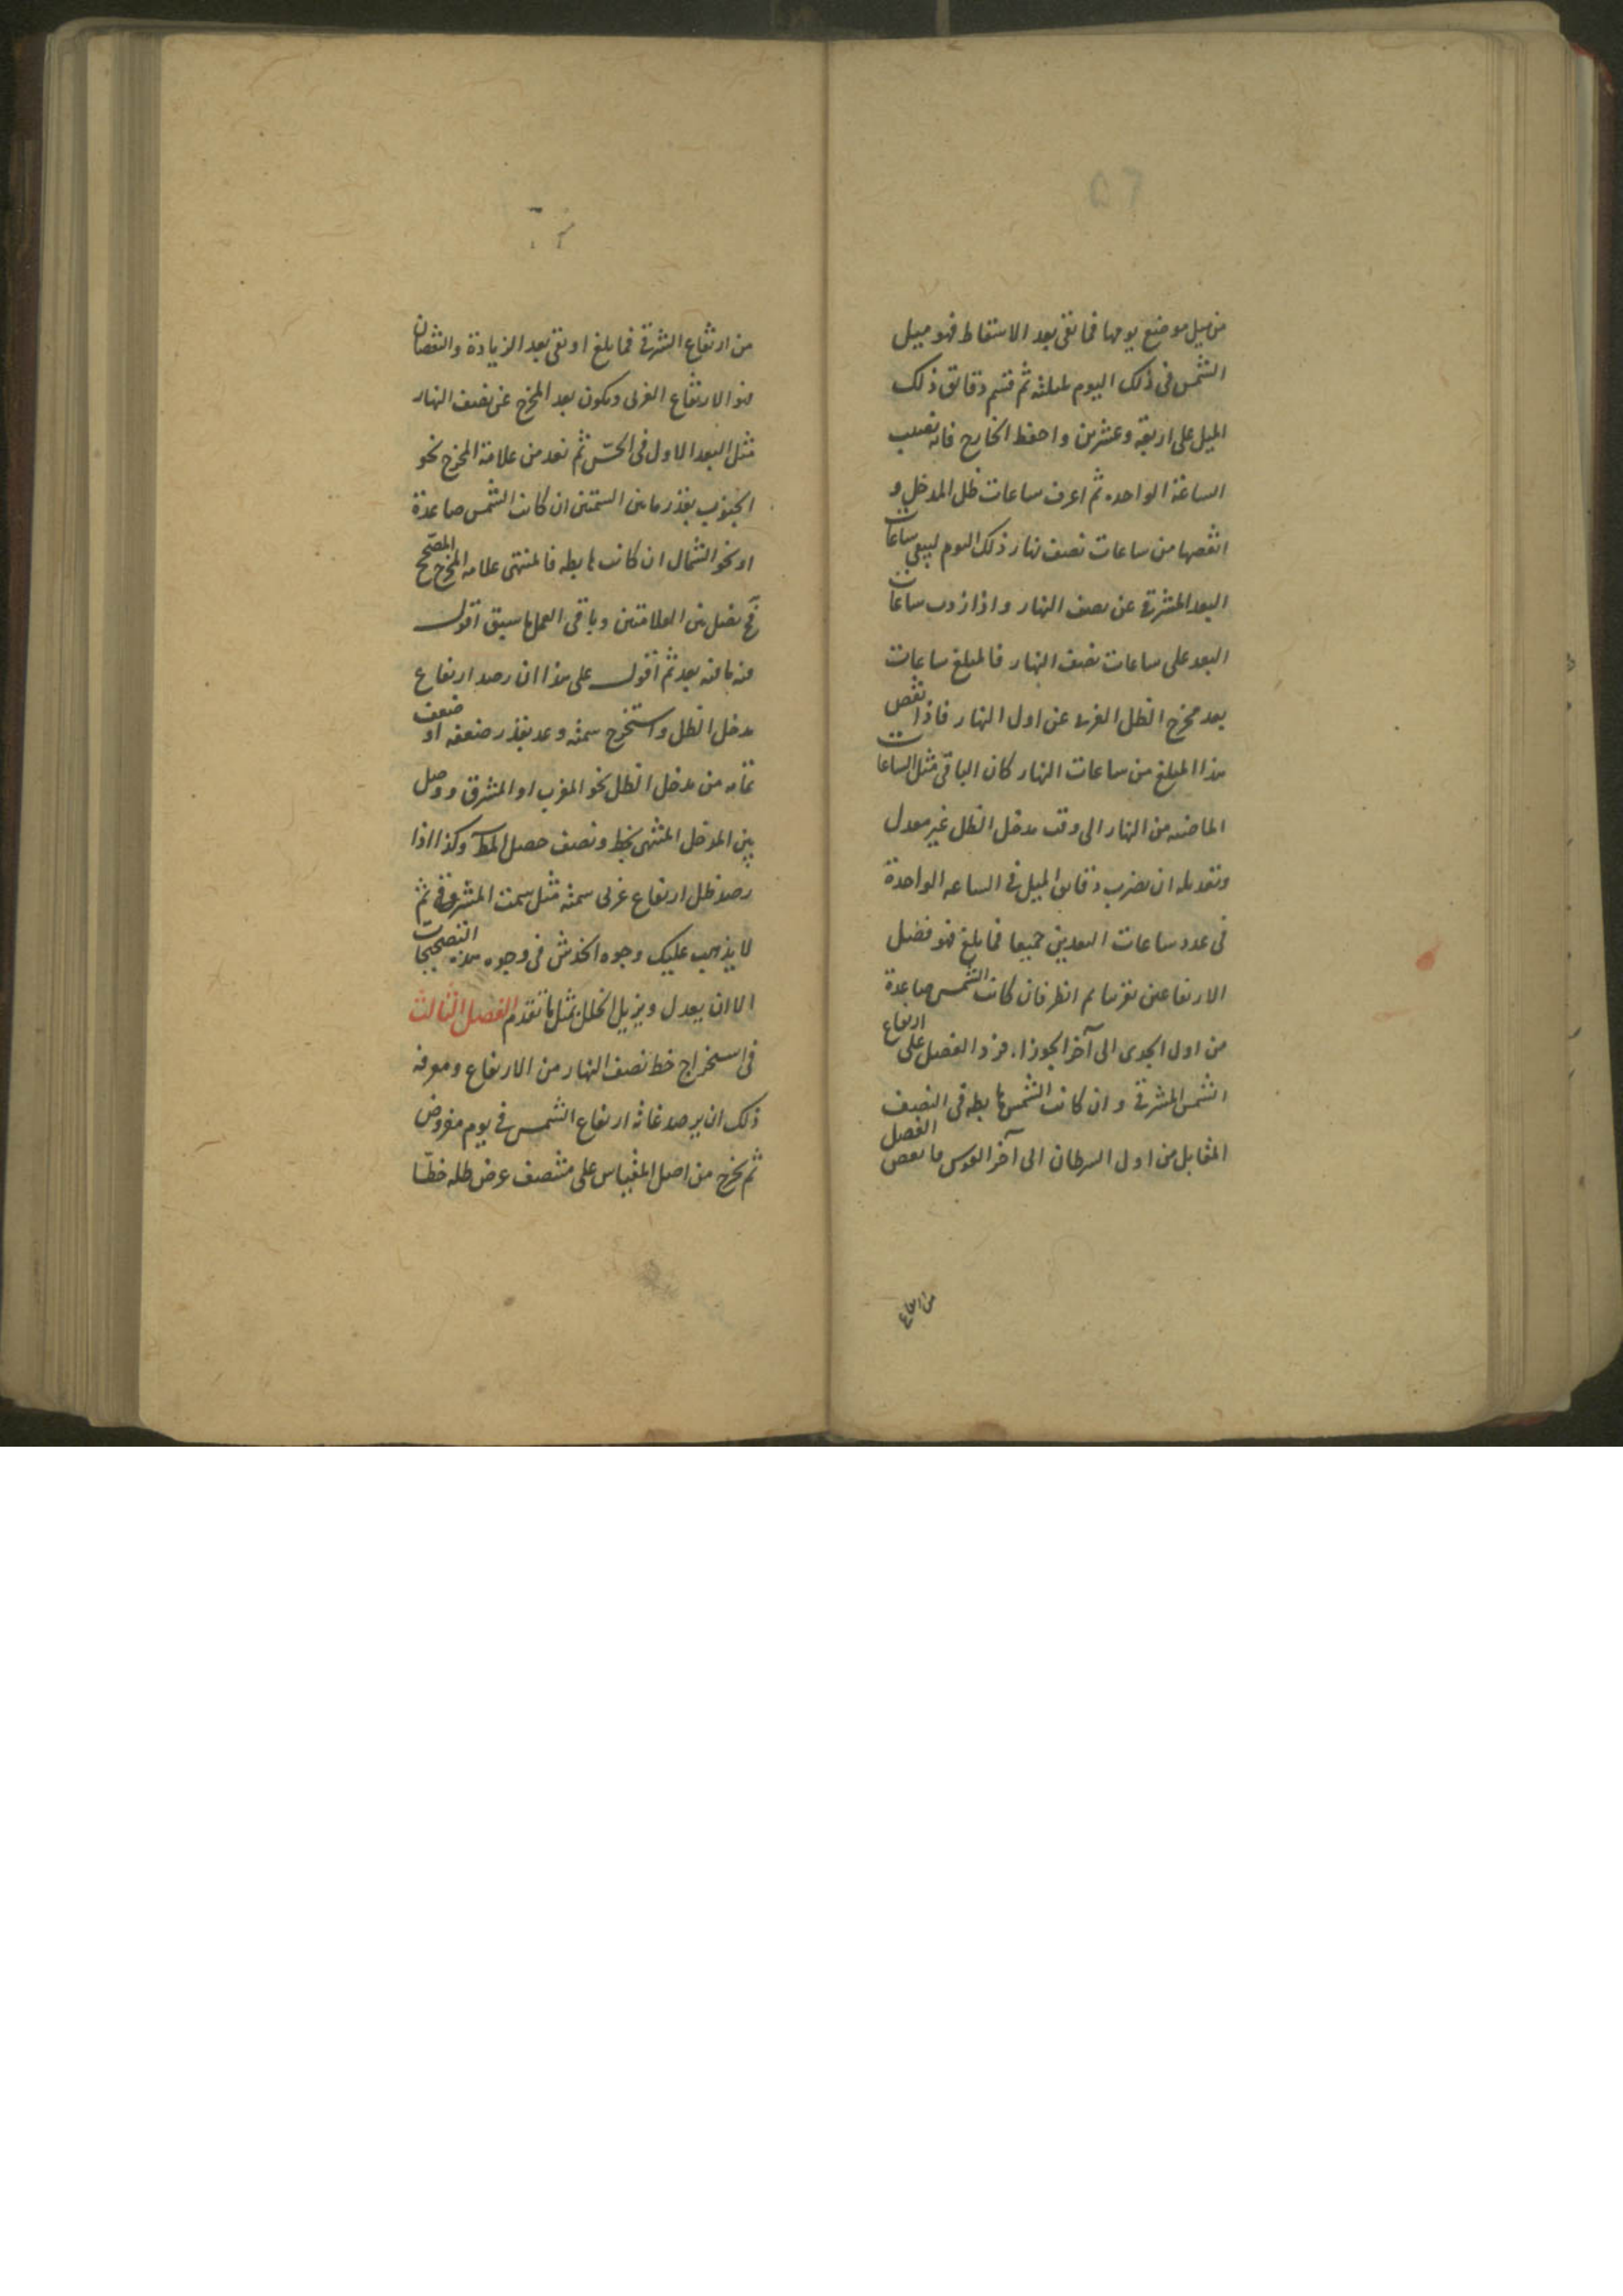 من ميل موضع يومها فما بقى بعد الاسقاط فهو ميل
الشمس فى ذلك اليوم بليلته ثم قسم دقائق ذلك
الميل على اربعة وعشرين واحفظ الخارج فانه نصيب
الساعة الواحده ثم اعرف ساعات ظل المدخل و
انقصها من ساعات نصف نهار ذلك اليوم ليبقى ساعات
البعد المشرقى عن نصف النهار واذا زدت ساعات
البعد على ساعات نصف النهار فالمبلغ ساعات
بعد مخرج الظل الغربى عن اول النهار فاذا نقص
هذا المبلغ من ساعات النهار كان الباقى مثل الساعات
الماضيه من النهار الى وقت مدخل الظل غير معدل
وتعديله ان يضرب دقايق الميل فى الساعه الواحدة
فى عدد ساعات البعدين جميعا فما بلغ فهو فضل
الارتفاعين تقريبا ثم انظر فان كانت الشمس صاعدة
من اول الجدى الى آخر الجوزاء فزد الفضل على ارتفاع
الشمس المشرقى وان كانت الشمس هابطه فى النصف
المقابل من اول السرطان الى آخر القوس فانقص الفضل
من ارتفاع
من ارتفاع الشرقى فما بلغ او بقى بعد الزيادة والنقصان
فهو الارتفاع الغربى ويكون بعد المخرج عن نصف النهار
مثل البعد الاول فى الحسّ ثم تعد من علامة المخرج نحو
الجنوب بقدر ما بين السمتين ان كانت الشمس صاعدة
او نحو الشمال ان كانت هابطه فالمنتهى علامه المخرج المصحح
فح نصل بين العلامتين وباقى العمل ما سبق اقول
فيه ما فيه بعد ثم اقول على هذا ان رصد ارتفاع
مدخل الظل واستخرج سمته وعد بقدر ضعفه او ضعف
تمامه من مدخل الظل نحو المغرب او المشرق ووصل
بين المدخل المنتهى بخط ونصف حصل المط وكذا اذا
رصد ظل ارتفاع غربى سمته مثل سمت المشرقى ثم
لا يذهب عليك وجوه الخدش فى وجوه هذه التصحيحات
الا ان يعدل ويزيل الخلل بمثل ما تقدم الفصل الثالث
فى استخراج خط نصف النهار من الارتفاع ومعرفة
ذلك ان يرصد غاية ارتفاع الشمس فى يوم مفروض
ثم يخرج من اصل المقياس على منتصف عرض ظله خطّا